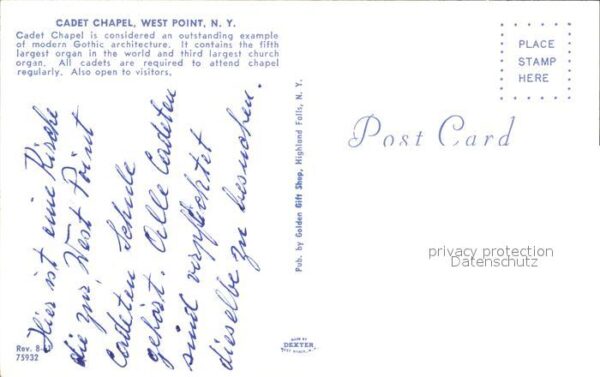 CADET CHAPEL, WEST POINT, N. Y.
Cadet Chapel is considered an outstanding example
of modern Gothic architecture. It contains the fifth
largest organ in the world and third largest church
organ. All cadets are required to attend chapel
regularly. Also open to visitors.
Hier ist eine Kirche
die zur West Point
Cadeten Schule
gehört. Alle Cadeten
sind verpflichtet
dieselbe zu besuchen.
Rev. 8-
75932
Pub. by Golden Gift Shop, Highland Falls, N. Y.
MADE BY
DEXTER
WEST NYACK, N.Y.
PLACE
STAMP
HERE
Post Card
privacy protection
Datenschutz